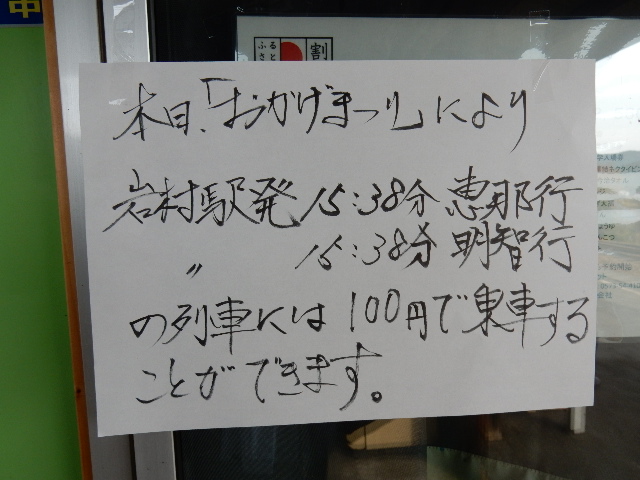 中
ふるさと
割
本日、「おかげまつり」により
岩村駅発 15:38分 恵那行
〃 15:38分 明智行
の列車には 100円で乗車する
ことができます。